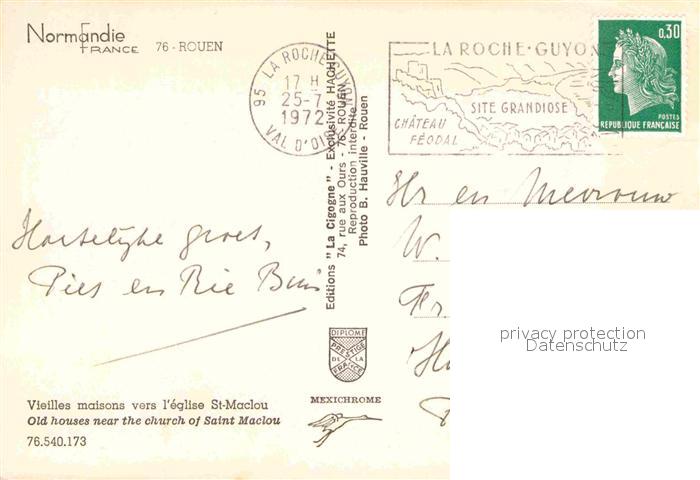 Normandie
FRANCE
76 - ROUEN
95 LA ROCHE-GUYON
17 H
25-7
1972
VAL D'OISE
LA ROCHE-GUYON
SITE GRANDIOSE
CHÂTEAU
FÉODAL
0,30
POSTES
REPUBLIQUE FRANÇAISE
Hr en Mevrouw
W.
Fr.
Hartelijke groet,
Piet en Rie
Editions "La Cigogne" - Exclusivité HACHETTE
74, rue aux Ours - 76- ROUEN
Reproduction interdite
Photo B. Hauville - Rouen
privacy protection
Datenschutz
DIPLOME
PRESTIGE
DE LA
FRANCE
MEXICHROME
Vieilles maisons vers l'église St-Maclou
Old houses near the church of Saint Maclou
76.540.173